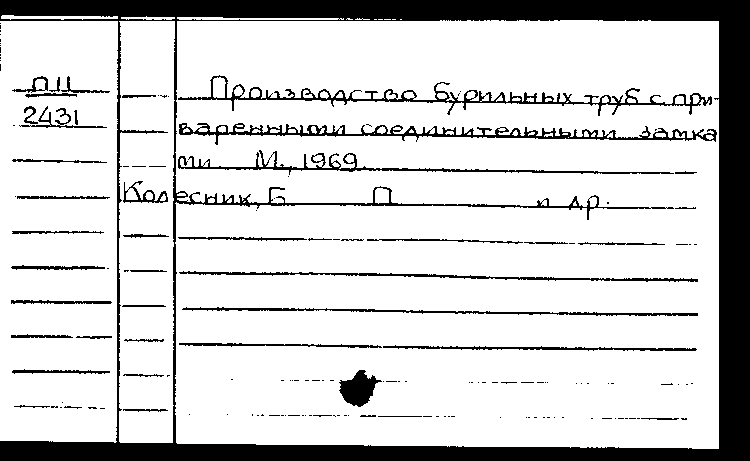 П II
2431
Производство бурильных труб с при-
варенными соединительными замка
ми. М., 1969.
Колесник, Б. П. и др.